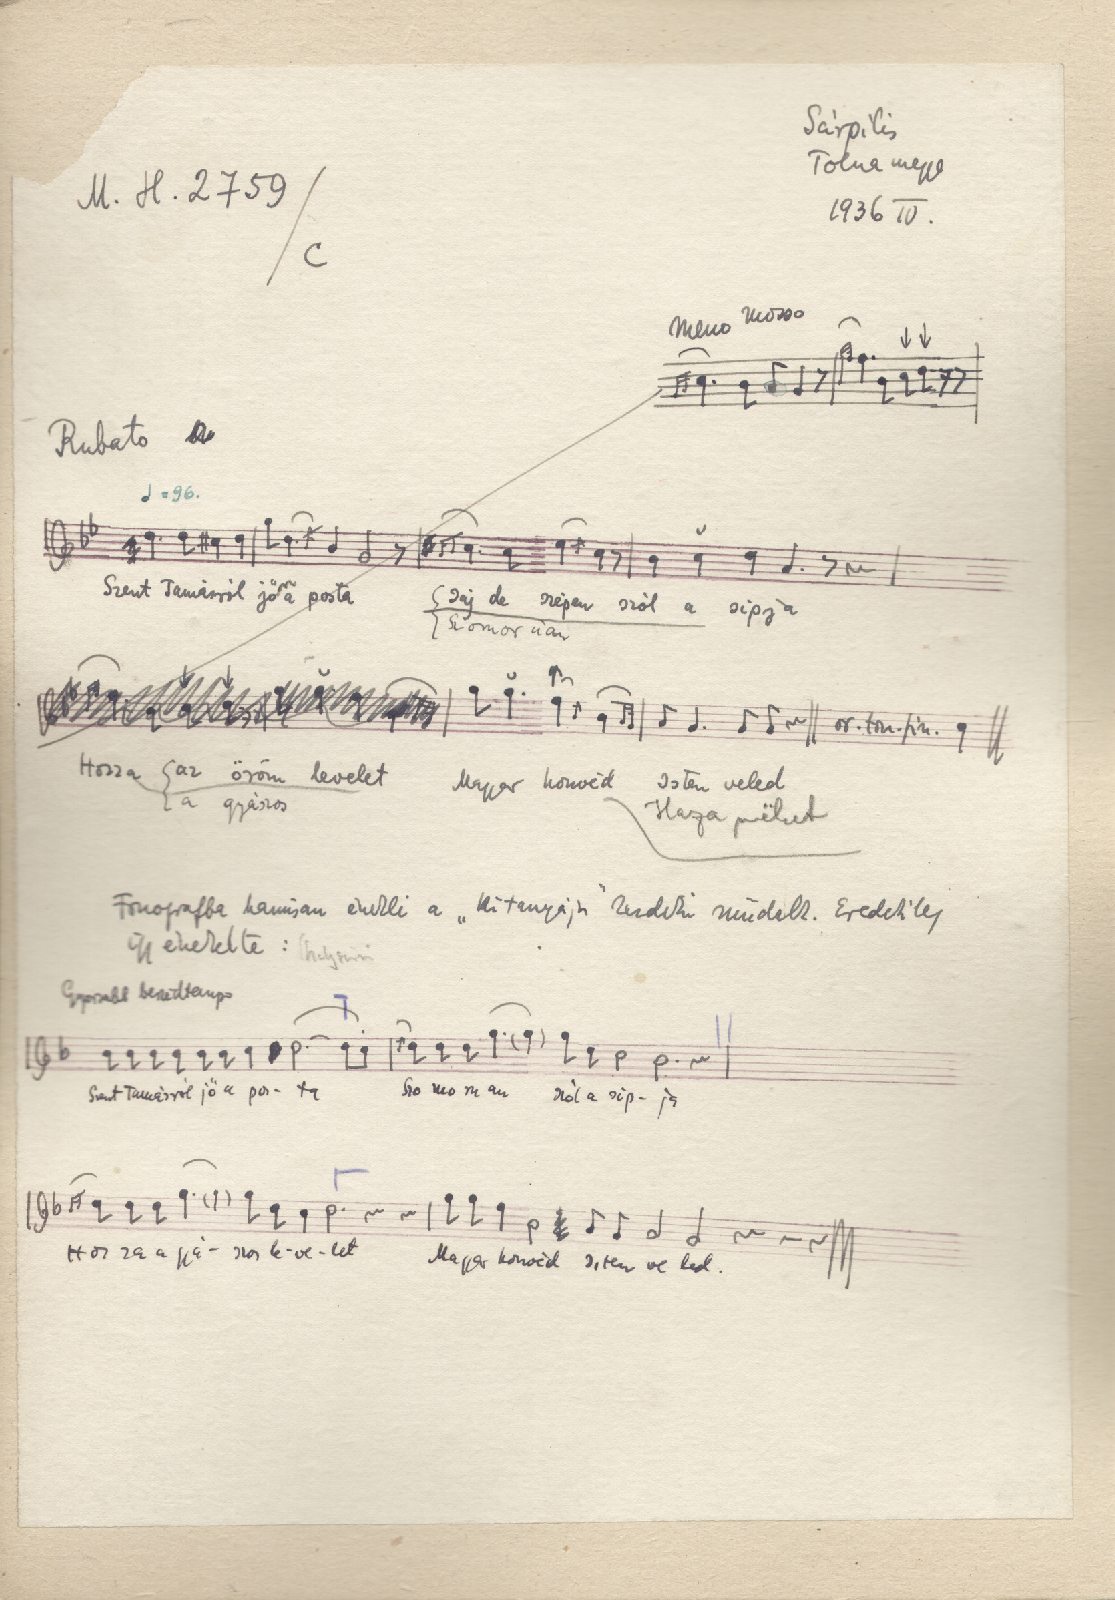 Sárpilis
Tolna megye
1936 IV.
M. H. 2759/c
Meno mosso
Rubato
♩ = 96.
Szent Tamásról jő a posta
Jaj de szépen szól a sipja
Szomorúan
Hozza az öröm levelet Magyar honvéd Isten veled
a gyászos Haza mëhet
or. ton. fin.
Fonografba hamisan énekli a „Ki tanyája" kezdetű műdalt. Eredetileg
így énekelte:
Gyorsabb beszédtempo
Szent Tamásról jő a pos- ta Szo mo rú an szól a sip- ja
Hoz za a gyá- szos le-ve-let Magyar honvéd Isten ve led.